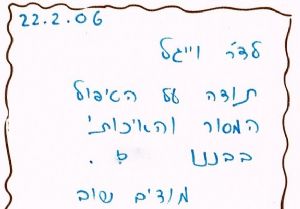 22.2.06
לדר' וייגל
תודה על הטיפול
המסור והאיכותי
בבננו
מודים שוב